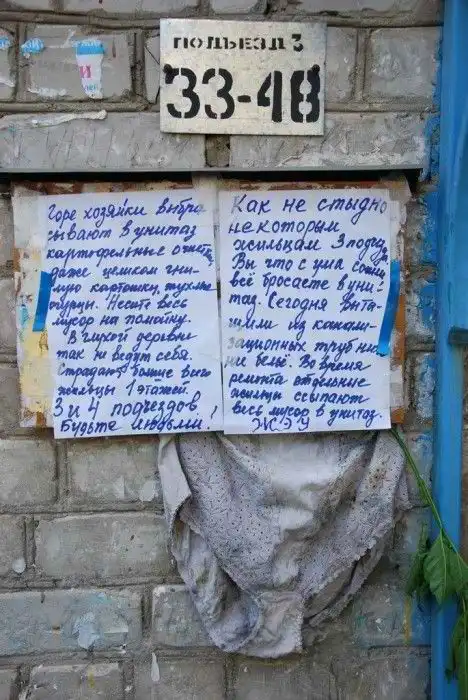 ПОДЪЕЗД 3
33-48
Горе хозяйки выбра
сывают в унитаз
картофельные очистки,
даже целиком гни-
лую картошку, тухлые
огурцы. Несите весь
мусор на помойку.
В глухой деревне
так не ведут себя.
Страдают больше всего
жильцы 1 этажей.
3 и 4 подъездов
Будьте людьми!
Как не стыдно
некоторым
жильцам 3 подъезда
Вы что с ума сошли
всё бросаете в уни-
таз. Сегодня выта-
щили из канали-
зационных труб ниж-
ние бельё. Во время
ремонта отдельные
жильцы ссыпают
весь мусор в унитаз.
ЖЭУ